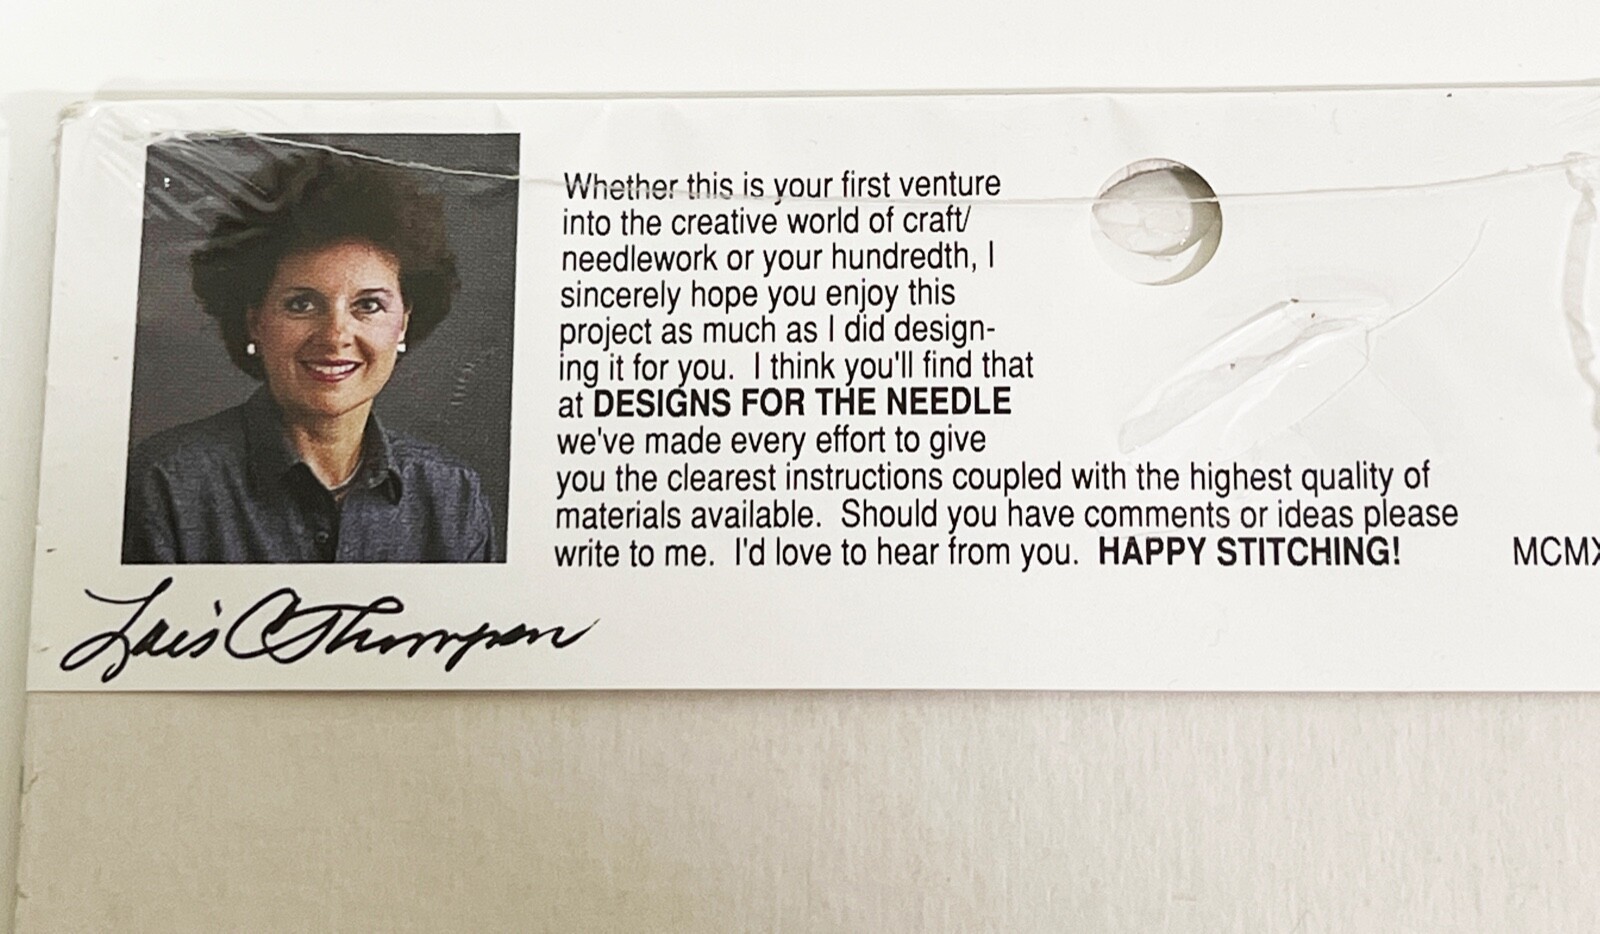 Whether this is your first venture
into the creative world of craft/
needlework or your hundredth, I
sincerely hope you enjoy this
project as much as I did design-
ing it for you. I think you'll find that
at DESIGNS FOR THE NEEDLE
we've made every effort to give
you the clearest instructions coupled with the highest quality of
materials available. Should you have comments or ideas please
write to me. I'd love to hear from you. HAPPY STITCHING!
MCMX
Lois C Thompson